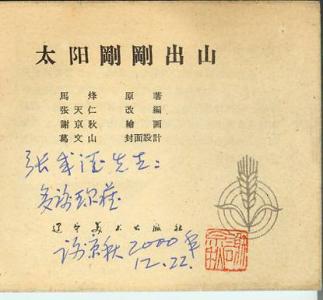 太阳剛剛出山
馬烽 原著
張天仁 改編
謝京秋 繪画
葛文山 封面設計
张 先生:
多谢珍藏
辽宁美术出版社
谢京秋 2000年
12.22.